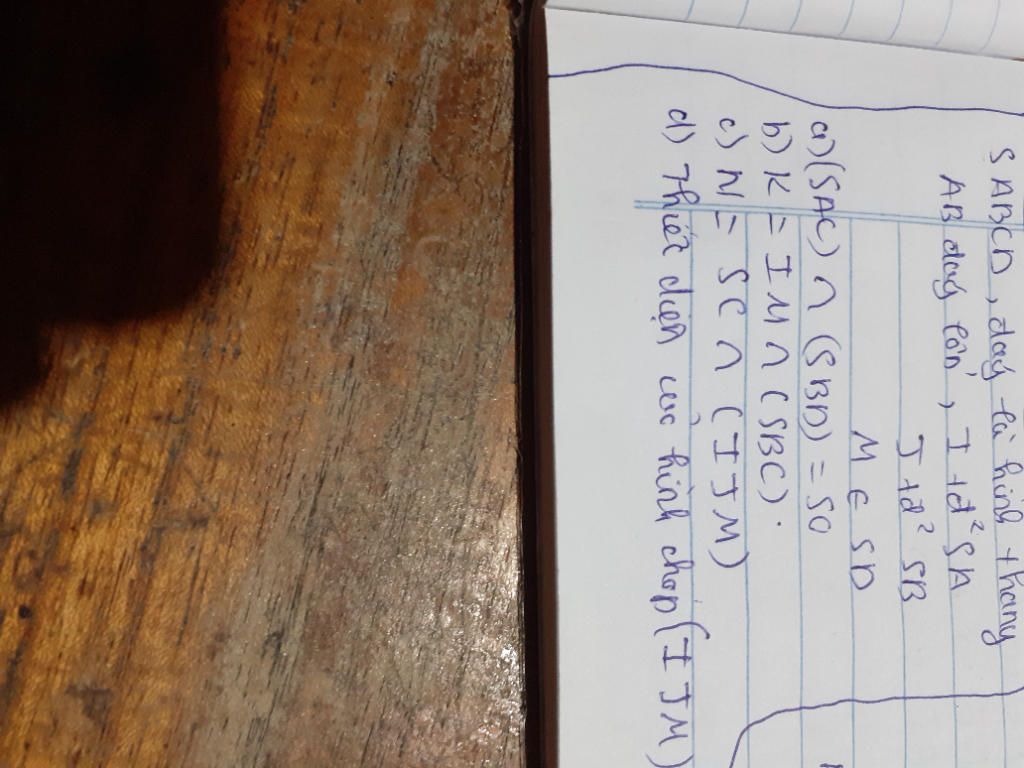 S ABCD, đáy là hình thang
AB đáy lớn, I tđ² SA
J tđ² SB
M ∈ SD
a) (SAC) ∩ (SBD) = SO
b) K = IM ∩ (SBC).
c) N = SC ∩ (IJM)
d) Thiết diện của hình chóp (IJM)